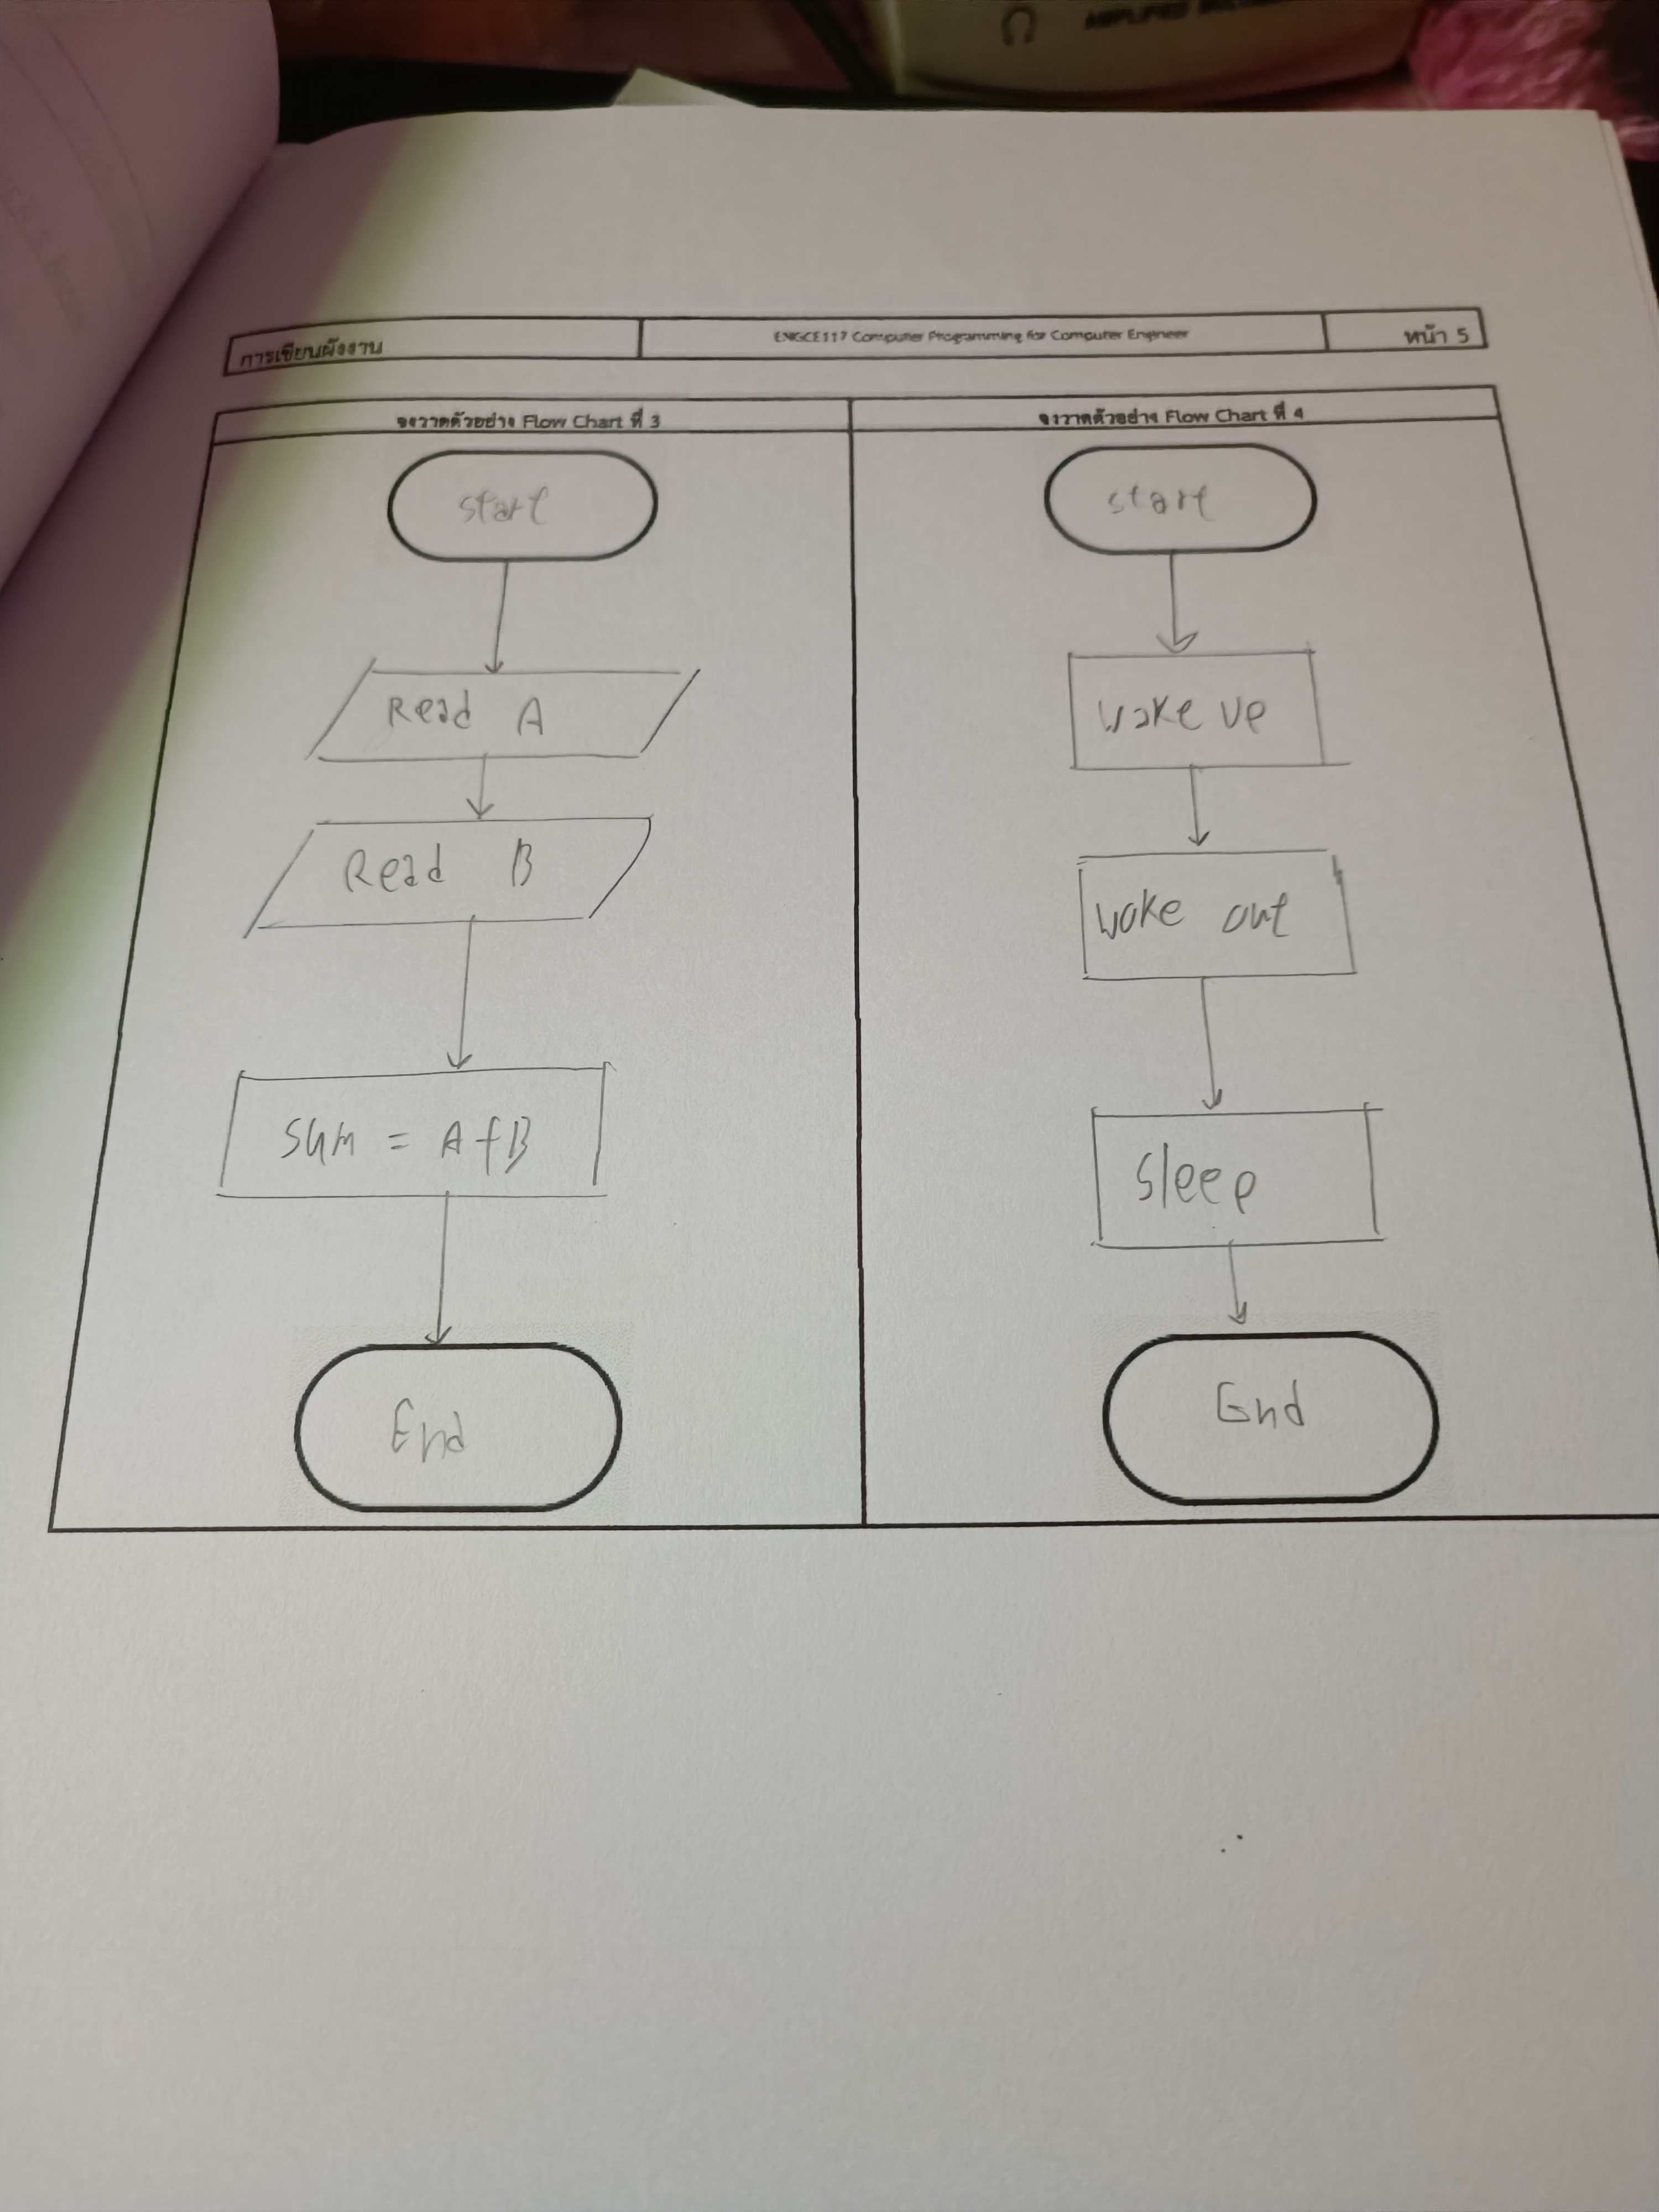 การเขียนผังงาน
ENGCE117 Computer Programming for Computer Engineer
หน้า 5
จงวาดตัวอย่าง Flow Chart ที่ 3
start
Read A
Read B
sum = A+B
End
จงวาดตัวอย่าง Flow Chart ที่ 4
start
wake up
woke out
sleep
End